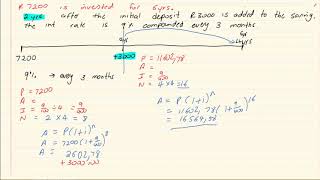 R 7200 is invested for 6yrs.
2 yrs after the initial deposit R 3000 is added to the saving,
the int rate is 9% compounded every 3 months
7200
+3000
9% → every 3 months
P = 7200
A =
I = 9/100 ÷ 4 = 9/400
N = 2 × 4 = 8
A = P(1+i)^n
A = 7200(1+9/400)^8
A =
+3000,00
P = 11602,78
A =
I = 9/400
N = 4×4 = 16
A = P(1+i)^n
= 11602,78(1+9/400)^16
= 16564,56